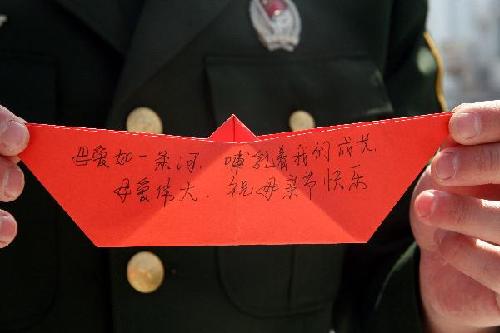 母爱如一条河,哺乳着我们成长
母爱伟大.祝母亲节快乐